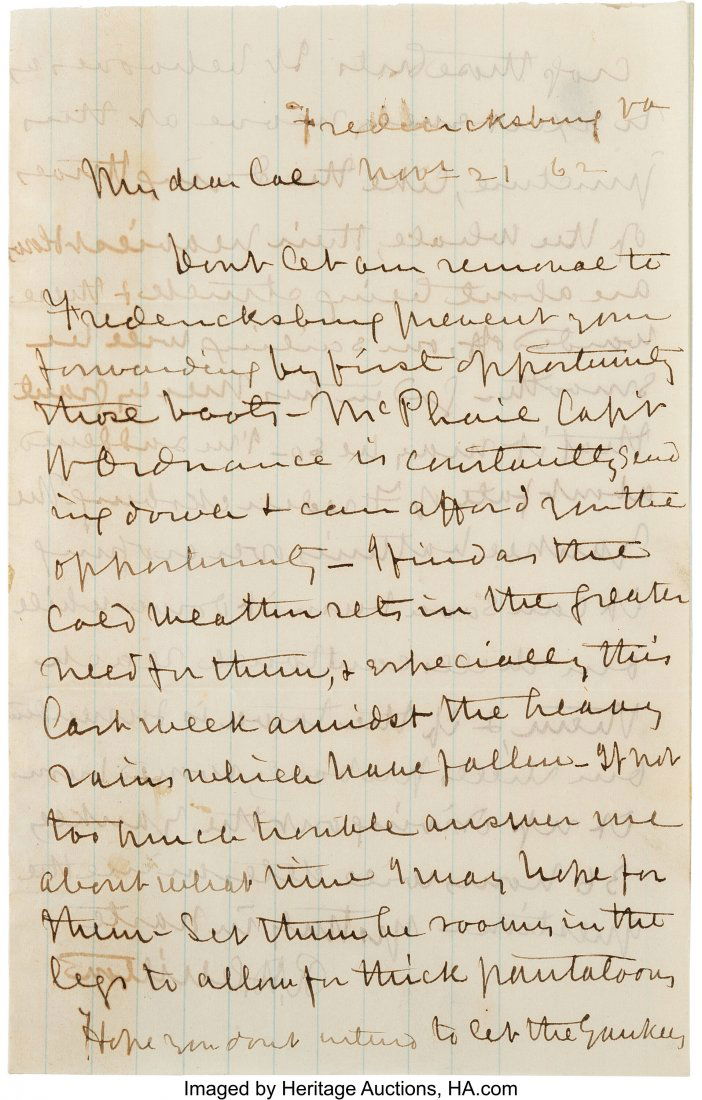 Fredericksburg Va
My dear Col Novr 21 62
Dont let our removal to
Fredericksburg prevent your
forwarding by first opportunity
those boots - McPhail Capt
of Ordnance is constantly send
ing down & can afford you the
opportunity - I find as the
cold weather sets in the greater
need for them, & especially this
last week amidst the heavy
rains which have fallen - If not
too much trouble answer me
about what time I may hope for
them - Let them be roomy in the
legs to allow for thick pantaloons
Hope you dont intend to let the Yankees
Imaged by Heritage Auctions, HA.com